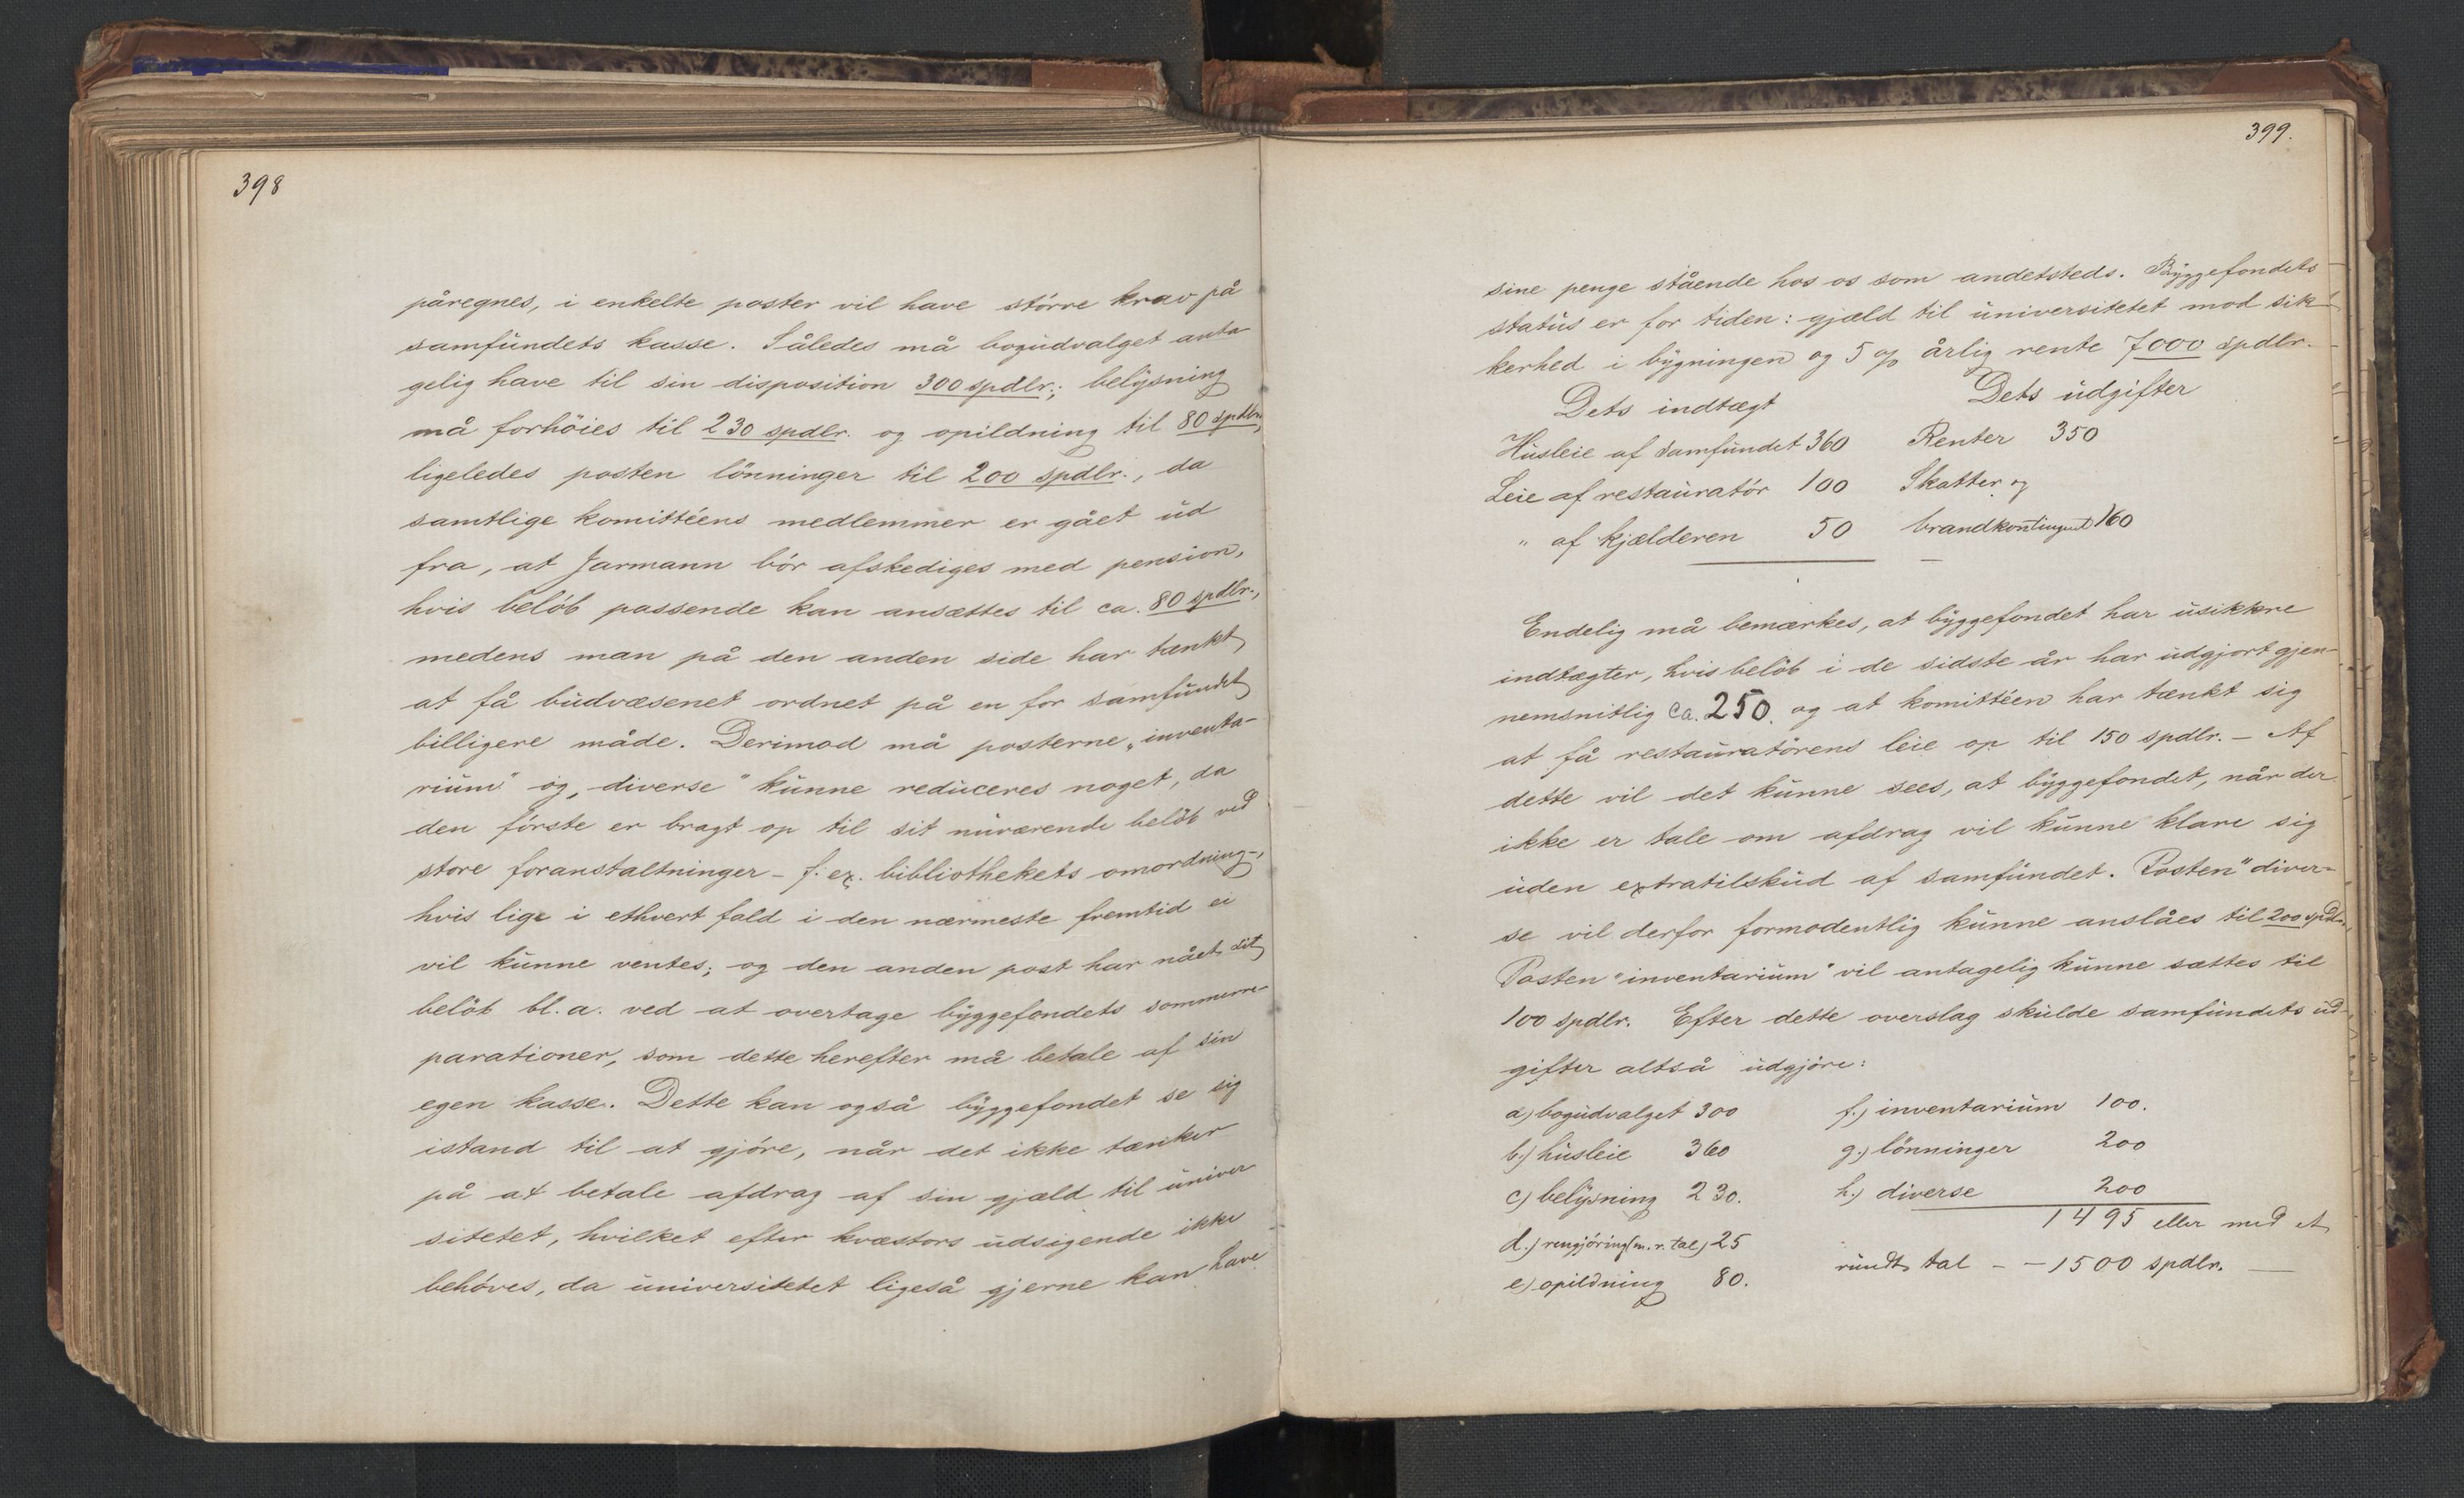 398
påregnes, i enkelte poster vil have större krav på
samfundets kasse. Således må bogudvalget anta
gelig have til sin disposition 300 spdlr.; belysning
må forhöies til 230 spdlr. og opildning til 80 spdlr.,
ligeledes posten lönninger til 200 spdlr., da
samtlige komittéens medlemmer er gået ud
fra, at Jarmann bör afskediges med pension,
hvis belöb passende kan ansættes til ca. 80 spdlr.,
medens man på den anden side har tænkt
at få budvæsenet ordnet på en for samfundet
billigere måde. Derimod må posterne „inventa-
rium" og „diverse" kunne reduceres noget, da
den förste er bragt op til sit nuværende belöb ved
store foranstaltninger - f. ex. bibliothekets omordning -,
hvis lige i ethvert fald i den nærmeste fremtid ei
vil kunne ventes; og den anden post har nået sit
belöb bl. a. ved at overtage byggefondets sommerre-
parationer, som dette herefter må betale af sin
egen kasse. Dette kan også byggefondet se sig
istand til at gjöre, når det ikke tænker
på at betale afdrag af sin gjæld til univer
sitetet, hvilket efter kvæstors udsigende ikke
behöves, da universitetet ligeså gjerne kan have
399.
sine penge stående hos os som andetsteds. Byggefondets
status er for tiden: gjæld til universitetet mod sik-
kerhed i bygningen og 5 % årlig rente 7000 spdlr.
Dets indtægt Dets udgifter
Husleie af samfundet 360 Renter 350
Leie af restauratör 100 Skatter og
" af kjælderen 50 brandkontingent 160
Endelig må bemærkes, at byggefondet har usikkre
indtægter, hvis belöb i de sidste år har udgjort gjen-
nemsnitlig ca. 250. og at komittéen har tænkt sig
at få restauratörens leie op til 150 spdlr. - Af
dette vil det kunne sees, at byggefondet, når der
ikke er tale om afdrag vil kunne klare sig
uden extratilskud af samfundet. Posten "diver-
se vil derfor formodentlig kunne anslåes til 200 spdlr.
Posten "inventarium" vil antagelig kunne sættes til
100 spdlr. Efter dette overslag skulde samfundets ud-
gifter altså udgjöre:
a) bogudvalget 300 f.) inventarium 100.
b.) husleie 360 g.) lönninger 200
c) belysning 230. h.) diverse 200
d.) rengjöring (m. r. tal) 25 1495 eller med et
e) opildning 80. rundt tal - - 1500 spdlr. -